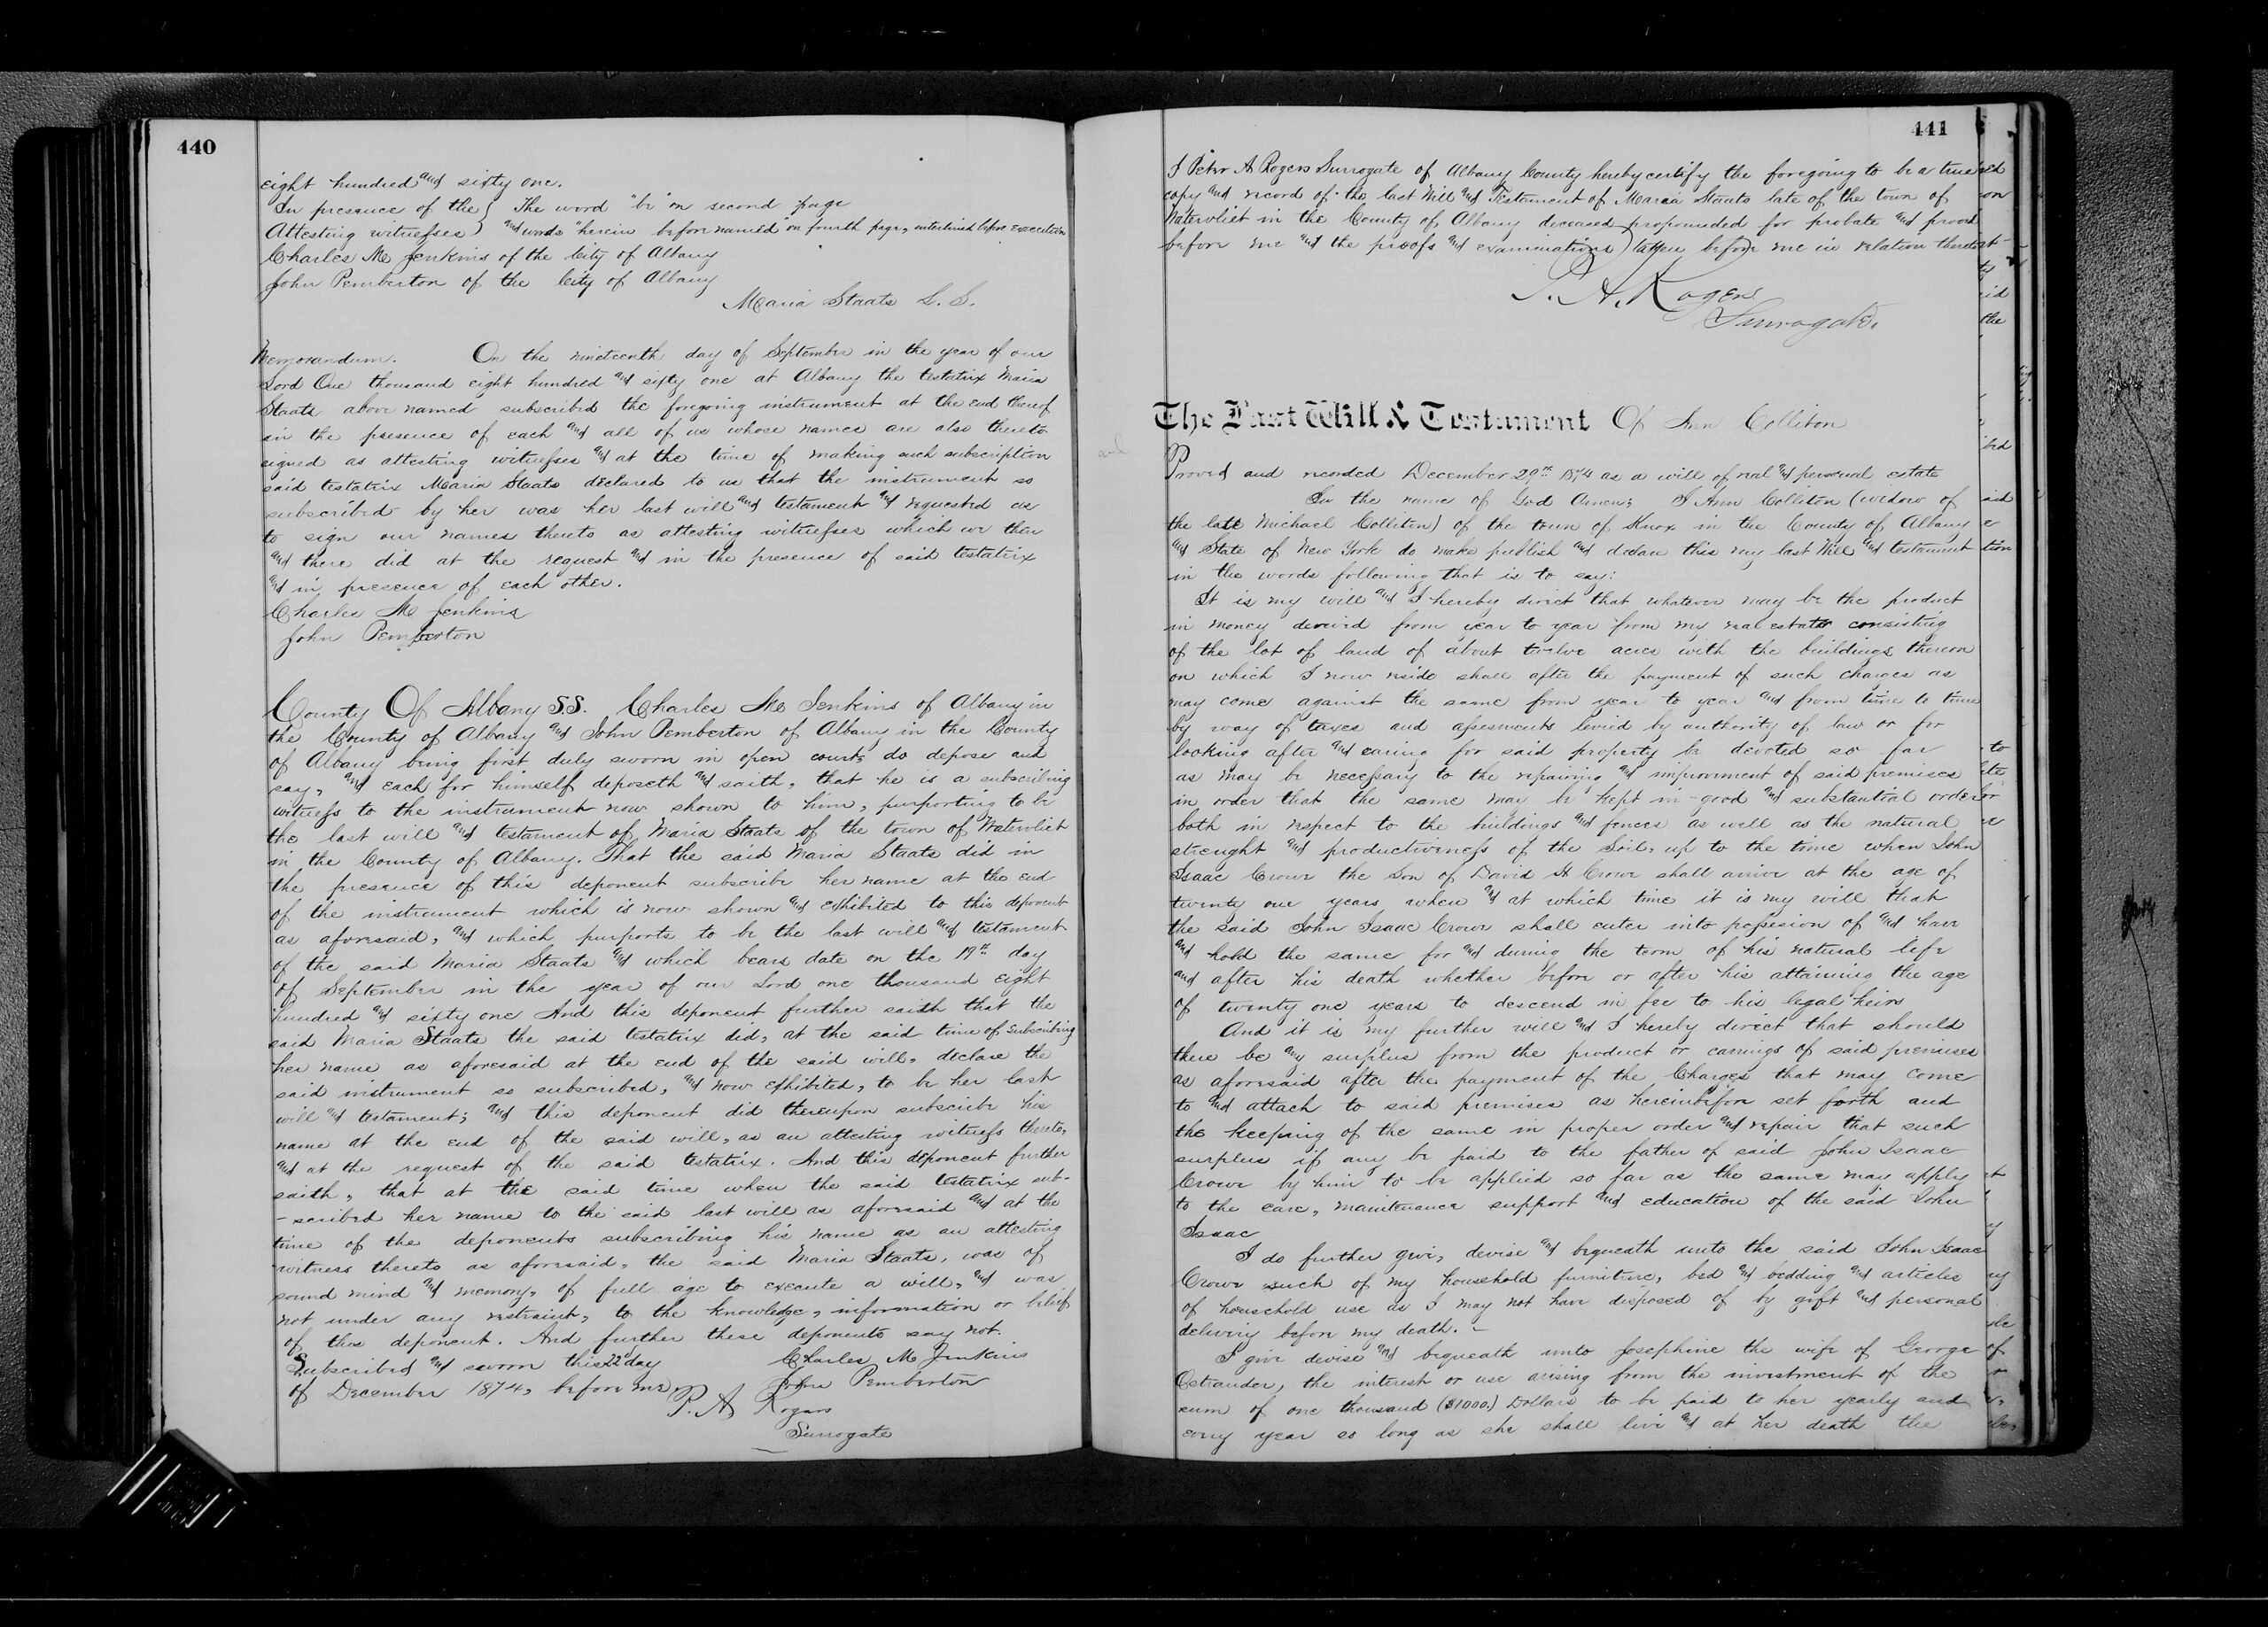 440
eight hundred and sixty one.
In presence of the } The word "be" on second page
Attesting witnesses ) and words "herein before named" on fourth page, interlined before execution
Charles M Jenkins of the City of Albany
John Pemberton of the City of Albany
Maria Staats L. S.
Memorandum. On the nineteenth day of September in the year of our
Lord One thousand eight hundred and sixty one at Albany the testatrix Maria
Staats above named subscribed the foregoing instrument at the end thereof
in the presence of each and all of us whose names are also thereto
signed as attesting witnesses and at the time of making such subscription
said testatrix Maria Staats declared to us that the instrument so
subscribed by her was her last will and testament and requested us
to sign our names thereto as attesting witnesses which we then
and there did at the request and in the presence of said testatrix
and in presence of each other.
Charles M Jenkins
John Pemberton
County Of Albany S.S. Charles M Jenkins of Albany in
the County of Albany and John Pemberton of Albany in the County
of Albany being first duly sworn in open court, do depose and
say, and each for himself deposeth and saith, that he is a subscribing
witness to the instrument now shown to him, purporting to be
the last will and testament of Maria Staats of the town of Watervliet
in the County of Albany. That the said Maria Staats did in
the presence of this deponent subscribe her name at the end
of the instrument which is now shown and exhibited to this deponent
as aforesaid, and which purports to be the last will and testament
of the said Maria Staats and which bears date on the 19th day
of September in the year of our Lord one thousand Eight
hundred and sixty one And this deponent further saith that the
said Maria Staats the said testatrix did, at the said time of Subscribing
her name as aforesaid at the end of the said will, declare the
said instrument so subscribed, and now exhibited, to be her last
will and testament; and this deponent did thereupon subscribe his
name at the end of the said will, as an attesting witness thereto,
and at the request of the said testatrix. And this deponent further
saith, that at the said time when the said testatrix sub-
-scribed her name to the said last will as aforesaid and at the
time of the deponents subscribing his name as an attesting
witness thereto as aforesaid, the said Maria Staats, was of
sound mind and memory, of full age to execute a will, and was
not under any restraint, to the knowledge, information or belief
of this deponent. And further these deponents say not.
Subscribed and sworn this 22 day Charles M Jenkins
of December 1874, before me, John Pemberton
P. A Rogers
Surrogate
441
I Peter A Rogers Surrogate of Albany County hereby certify the foregoing to be a true
copy and record of the last Will and Testament of Maria Staats late of the town of
Watervliet in the County of Albany deceased propounded for probate and proved
before me and the proofs and examinations taken before me in relation thereto
P. A. Rogers
Surrogate.
The Last Will & Testament Of Ann Colliton
Proved and recorded December 29th 1874 as a will of real and personal estate
In the name of God Amen; I Ann Colliton (widow of
the late Michael Colliton) of the town of Knox in the County of Albany
and State of New York do make publish and declare this my last Will and testament
in the words following that is to say:
It is my will and I hereby direct that whatever may be the product
in money derived from year to year from my real estate consisting
of the lot of land of about twelve acres with the buildings thereon
on which I now reside shall after the payment of such charges as
may come against the same from year to year and from time to time
by way of taxes and assesments levied by authority of law or for
looking after and caring for said property be devoted so far
as may be necessary to the repairing and improvement of said premises
in order that the same may be kept in good and substantial order
both in respect to the buildings and fences as well as the natural
strenght and productiveness of the Soil, up to the time when John
Isaac Crowe the Son of David H Crowe shall arrive at the age of
twenty one years, when and at which time it is my will that
the said John Isaac Crowe shall enter into possesion of and have
and hold the same for and during the term of his natural life
and after his death whether before or after his attaining the age
of twenty one years to descend in fee to his legal heirs
And it is my further will and I hereby direct that should
there be any surplus from the product or earnings of said premises
as aforesaid after the payment of the Charges that may come
to and attach to said premises as hereinbefore set forth and
the keeping of the same in proper order and repair that such
surplus if any be paid to the father of said John Isaac
Crowe by him to be applied so far as the same may apply
to the care, maintenance support and education of the said John
Isaac
I do further give, devise and bequeath unto the said John Isaac
Crowe such of my household furniture, bed and bedding and articles
of household use as I may not have disposed of by gift and personal
delivery before my death. -
I give devise and bequeath unto Josephine the wife of George
Ostrander, the interest or use arising from the investment of the
sum of one thousand ($1000.) Dollars, to be paid to her yearly and
every year so long as she shall live and at her death the